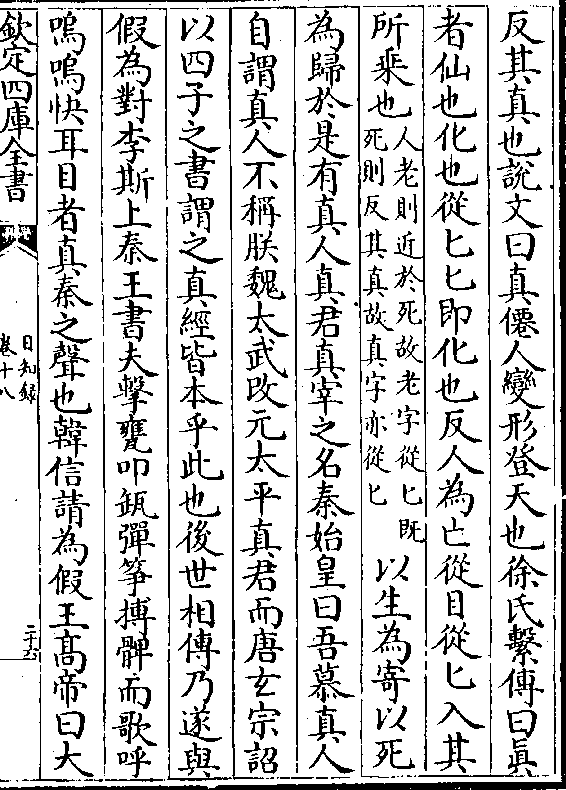 反其真也說文曰真僊人變形登天也徐氏繫傳曰眞
者仙也化也從匕匕即化也反人為亡從目從匕入其
所乘也人老則近於死故老字從匕既
死則反其真故真字亦從匕
以生為寄以死
為歸於是有真人真君真宰之名秦始皇曰吾慕真人
自謂真人不稱朕魏太武改元太平真君而唐玄宗詔
以四子之書謂之真經皆本乎此也後世相傳乃遂與
假為對李斯上秦王書夫擊甕叩缻彈箏搏髀而歌呼
嗚嗚快耳目者真秦之聲也韓信請為假王高帝曰大
欽定四庫全書
日知録
卷十八
二十六